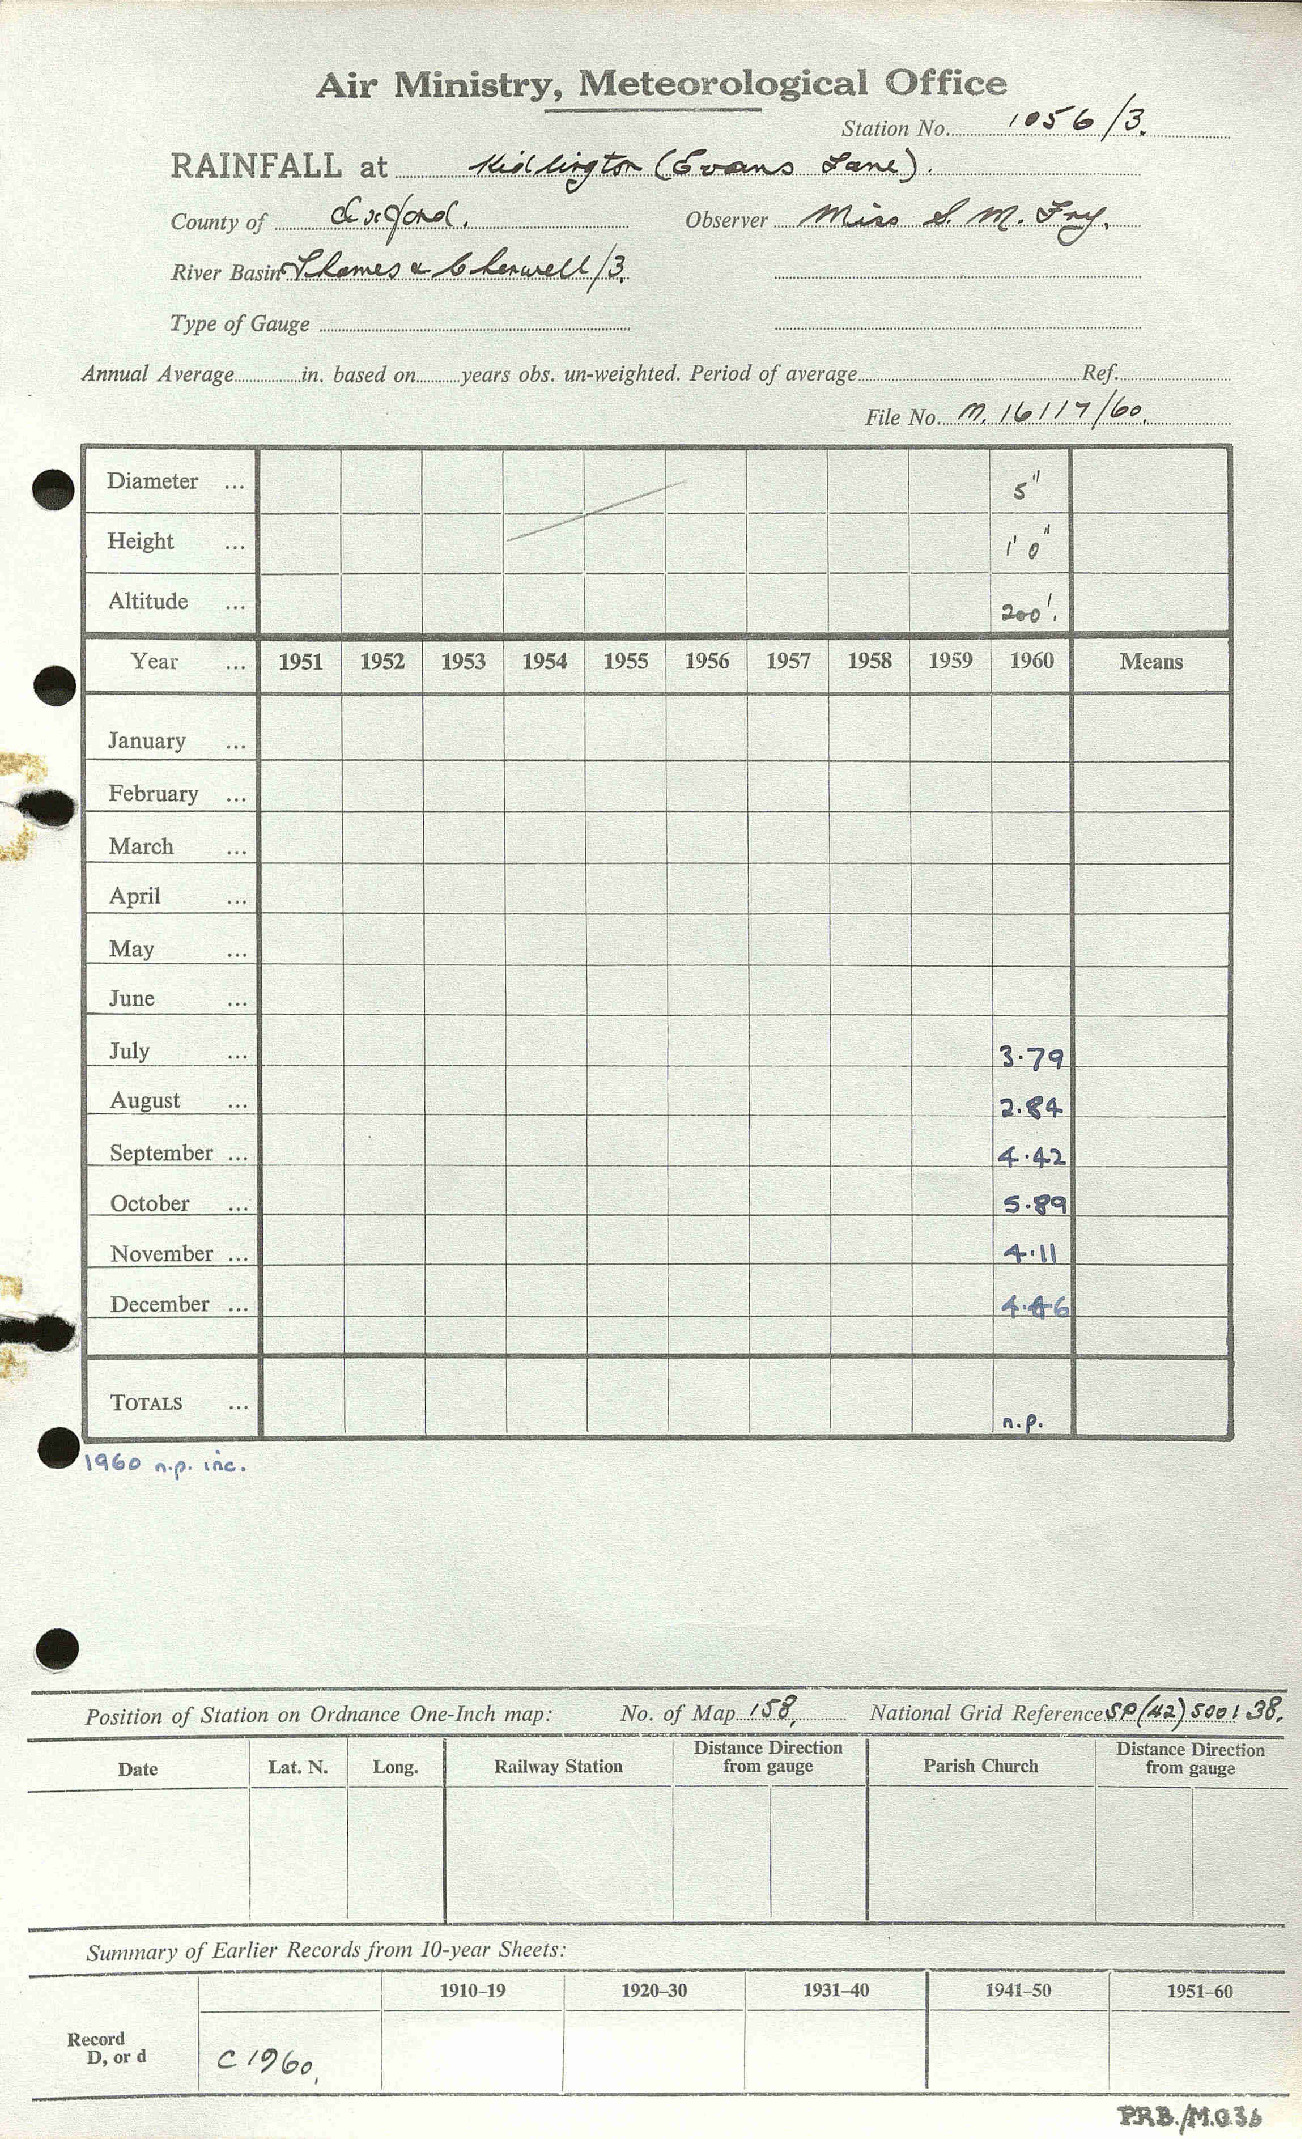 Air Ministry, Meteorological Office
Station No. 1056/3.
RAINFALL at Kidlington (Evans Lane).
County of Oxford. Observer Miss S. M. Fry.
River Basin Thames & Cherwell/3.
Type of Gauge
Annual Average in. based on years obs. un-weighted. Period of average Ref.
File No. M. 16117/60.
Diameter ... 5"
Height ... 1' 0"
Altitude ... 200'.
Year ... 1951 1952 1953 1954 1955 1956 1957 1958 1959 1960 Means
January ...
February ...
March ...
April ...
May ...
June ...
July ... 3.79
August ... 2.84
September ... 4.42
October ... 5.89
November ... 4.11
December ... 4.46
TOTALS ... n.p.
1960 n.p. inc.
Position of Station on Ordnance One-Inch map: No. of Map 158, National Grid Reference SP(42) 500138.
Date Lat. N. Long. Railway Station Distance Direction from gauge Parish Church Distance Direction from gauge
Summary of Earlier Records from 10-year Sheets:
1910–19 1920–30 1931–40 1941–50 1951–60
Record
D, or d C 1960,
PRB./M.O.36